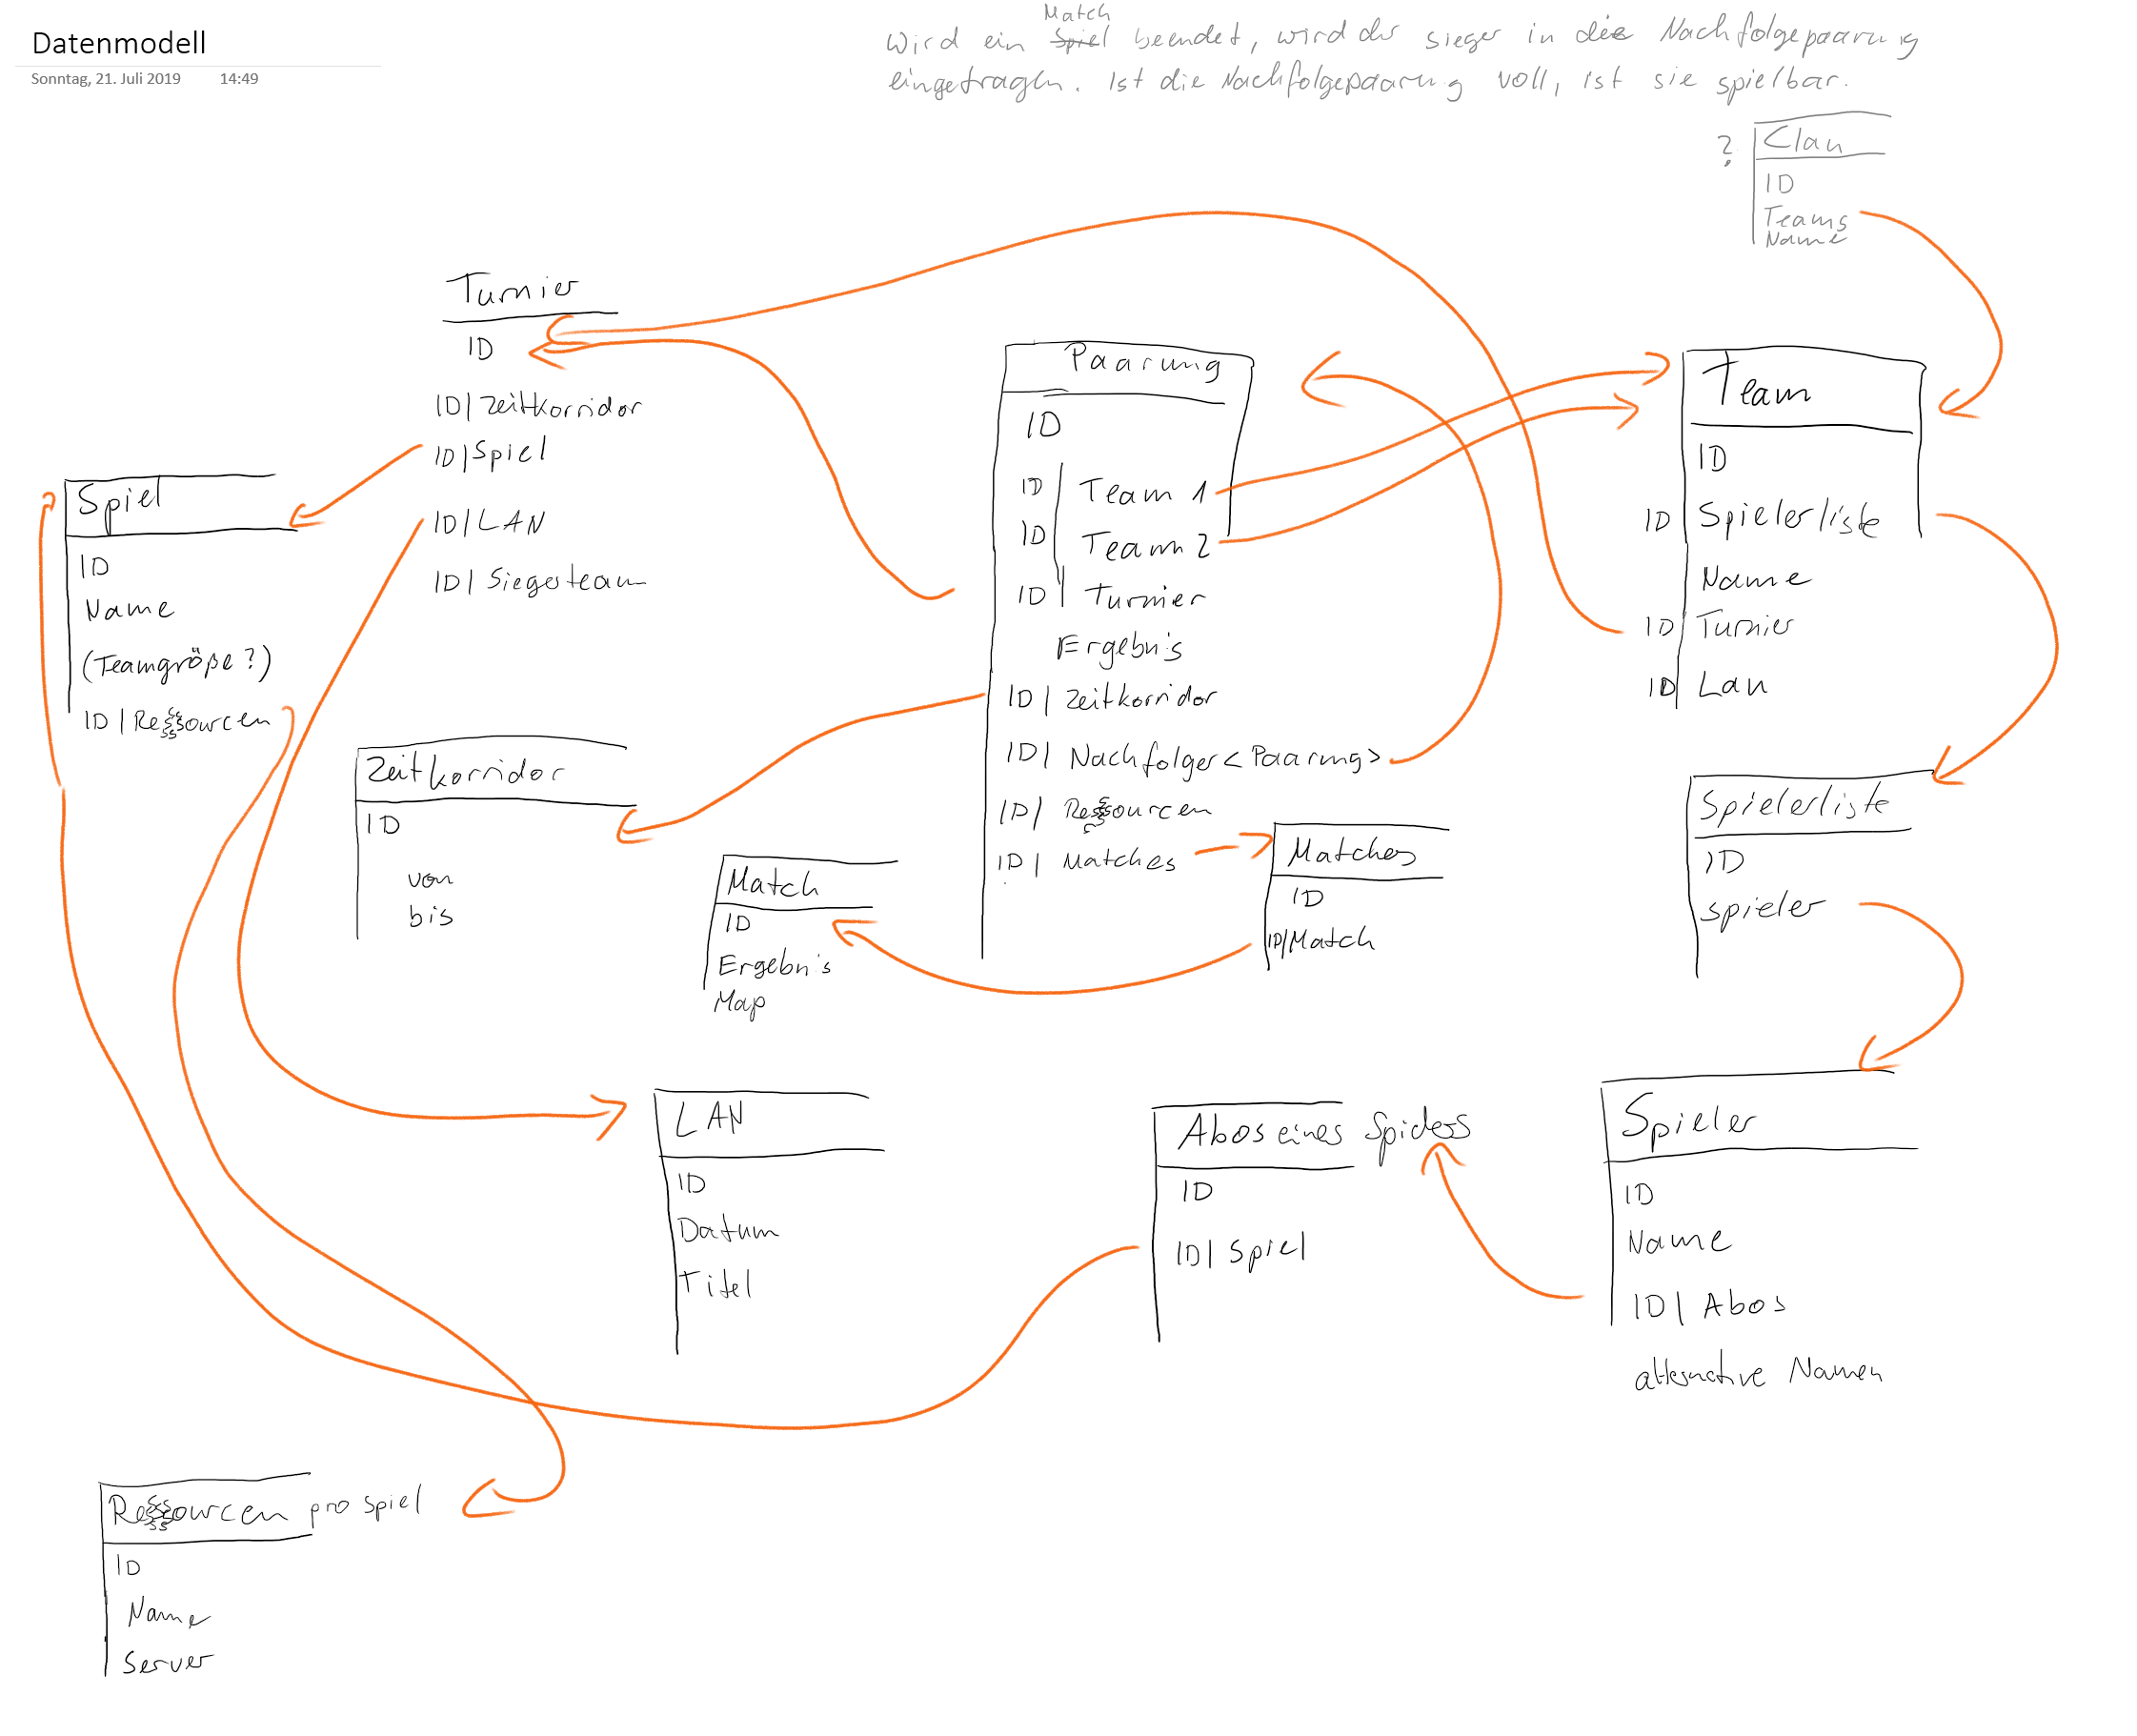 Datenmodell
Sonntag, 21. Juli 2019 14:49
Match
Wird ein Spiel beendet, wird der Sieger in die Nachfolgepaarung
eingetragen. Ist die Nachfolgepaarung voll, ist sie spielbar.
? Clan
ID
Teams
Name
Turnier
ID
ID | Zeitkorridor
ID | Spiel
ID | LAN
ID | Siegerteam
Paarung
ID
ID | Team 1
ID | Team 2
ID | Turnier
Ergebnis
ID | Zeitkorridor
ID | Nachfolger <Paarung>
ID | Ressourcen
ID | Matches
Team
ID
ID | Spielerliste
Name
ID | Turnier
ID | Lan
Spiel
ID
Name
(Teamgröße?)
ID | Ressourcen
Zeitkorridor
ID
von
bis
Match
ID
Ergebnis
Map
Matches
ID
ID | Match
Spielerliste
ID
Spieler
LAN
ID
Datum
Titel
Abos eines Spielers
ID
ID | Spiel
Spieler
ID
Name
ID | Abos
alternative Namen
Ressourcen pro Spiel
ID
Name
Server